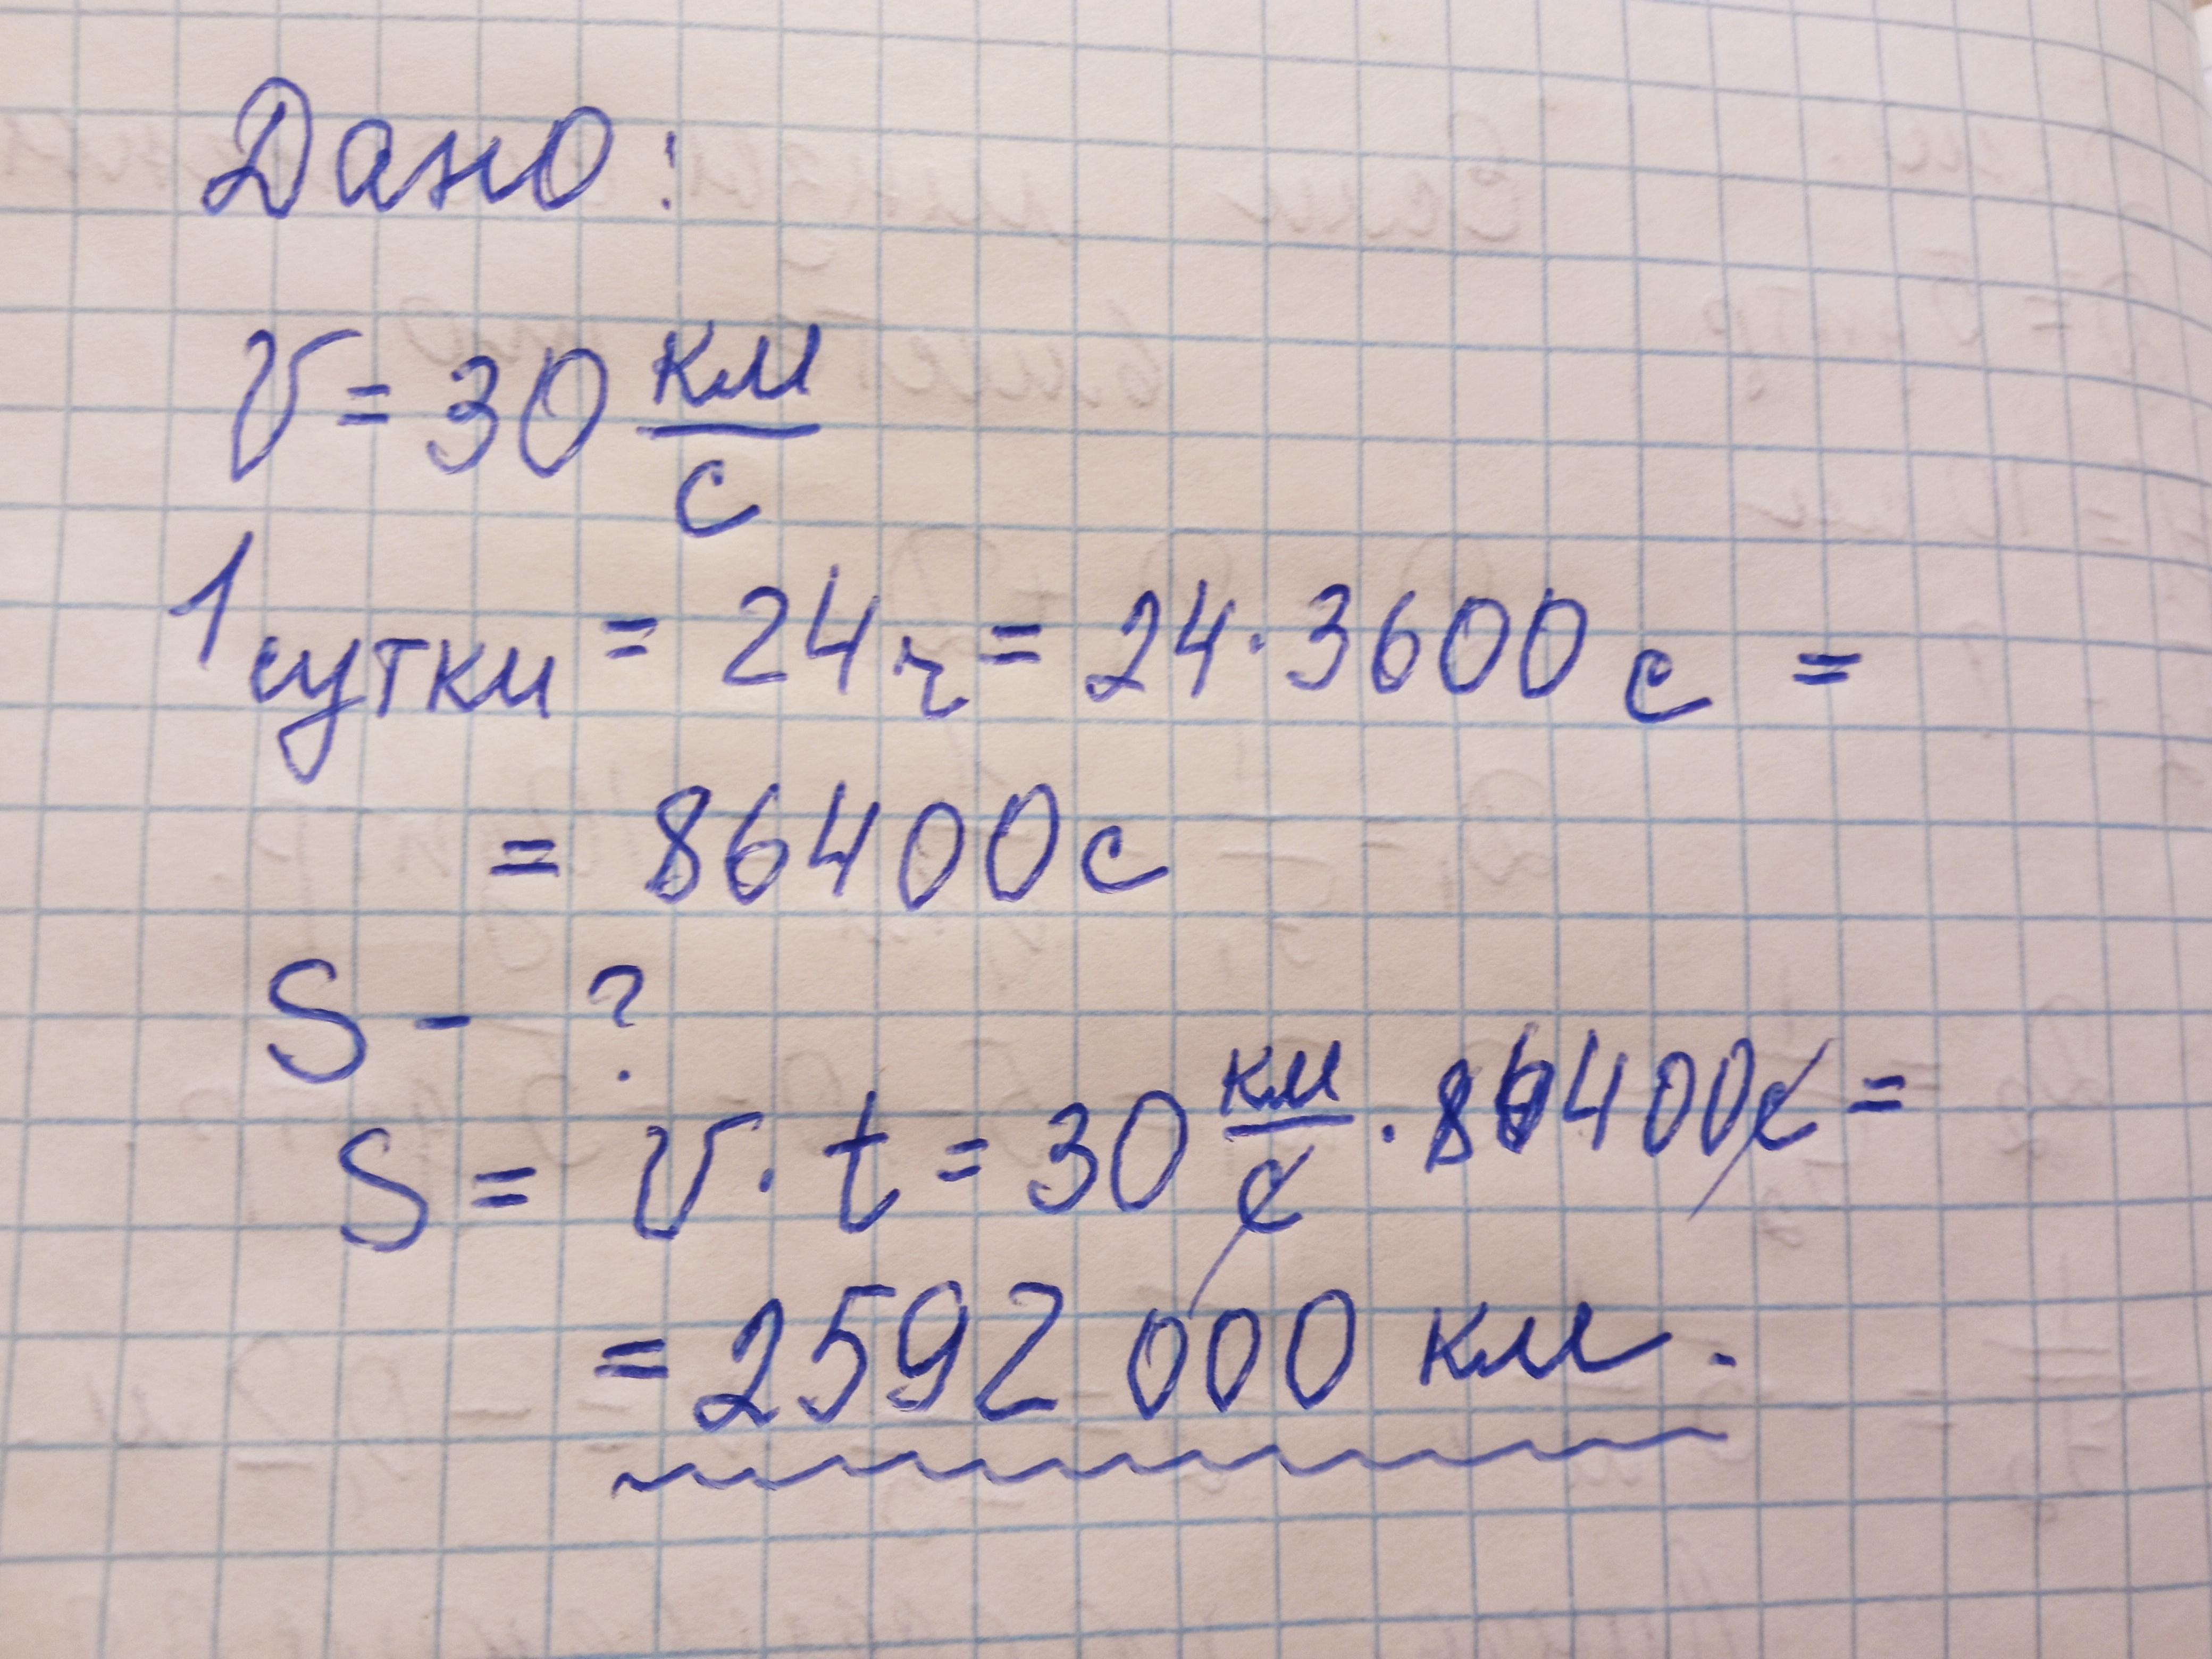 Дано:
V = 30 км/с
1 сутки = 24 ч = 24 · 3600 с =
= 86400 с
S - ?
S = V · t = 30 км/с · 86400 с =
= 2592 000 км.